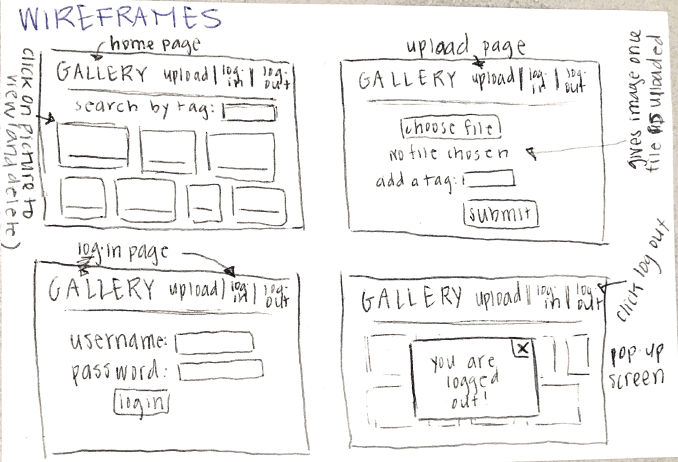 WIREFRAMES
home page
GALLERY upload | log-in | log-out
search by tag:
click on picture to
view (and delete)
upload page
GALLERY upload | log-in | log-out
choose file
no file chosen
add a tag:
submit
gives image once
file is uploaded
log-in page
GALLERY upload | log-in | log-out
username:
password:
login
GALLERY upload | log-in | log-out
You are
logged
out!
X
click log out
pop-up
screen